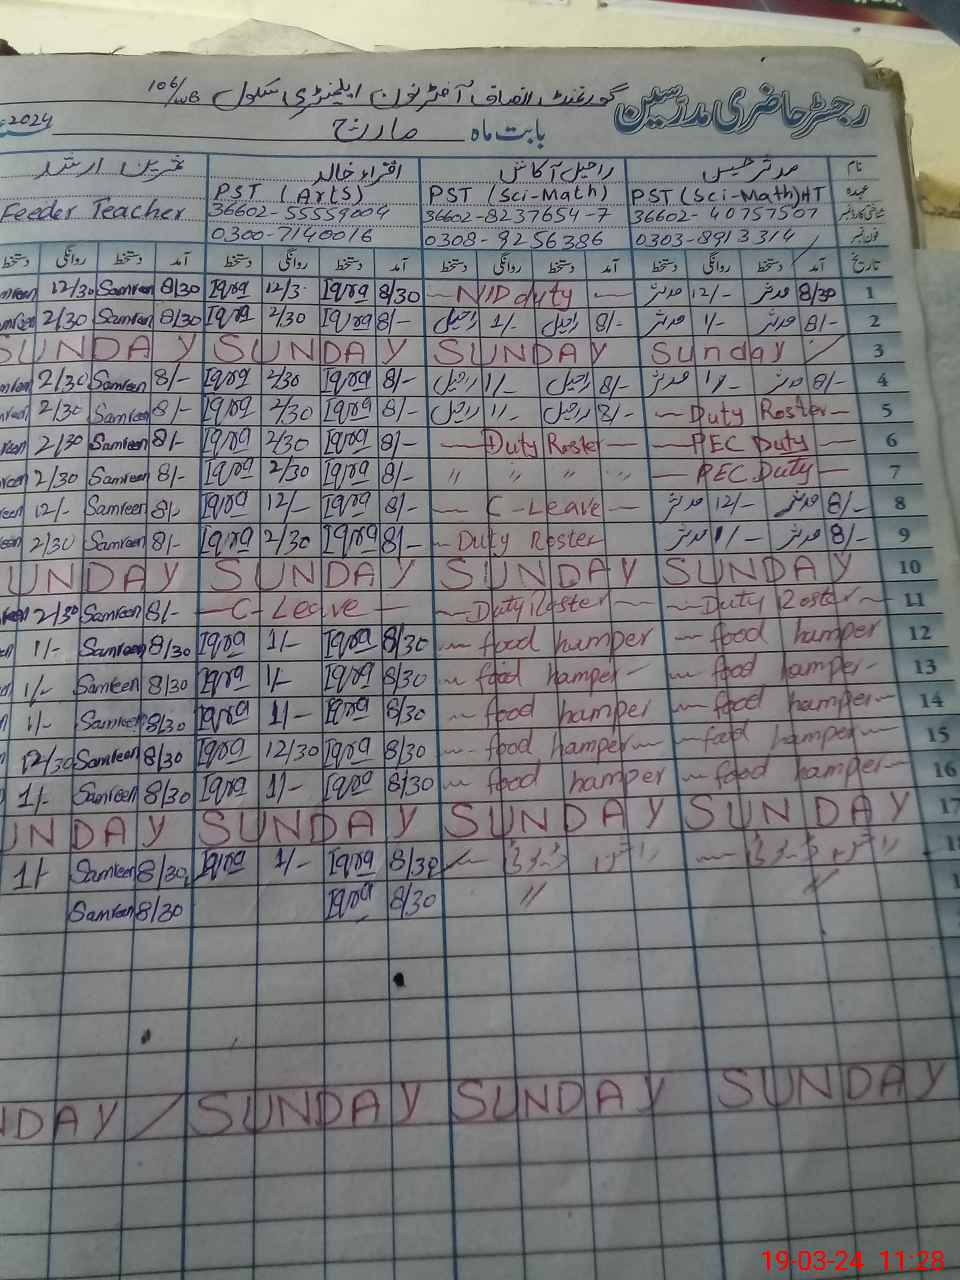 رجسٹر حاضری مدرسین گورنمنٹ انصاف آفٹرنون ایلیمنٹری سکول 106/WB
بابت ماہ مارچ 2024
نام مدثر حسین راحیل آکاش اقراء خالد ثمرین ارشد
عہدہ PST (Sci-Math) HT PST (Sci-Math) PST (Arts) Feeder Teacher
36602-40757507 36602-8237654-7 36602-55559004
فون نمبر 0303-8913314 0308-9256386 0300-7140016
تاریخ آمد دستخط روانگی دستخط آمد دستخط روانگی دستخط آمد دستخط روانگی دستخط آمد دستخط روانگی دستخط
1 8/30 مدثر 12/- مدثر — NID duty — 8/30 Iqra 12/3 Iqra 8/30 Samreen 12/30
2 8/- مدثر 1/- مدثر 8/- راحیل 1/- راحیل 8/- Iqra 2/30 Iqra 8/30 Samreen 2/30
3 Sunday SUNDAY SUNDAY SUNDAY
4 8/- مدثر 1/- مدثر 8/- راحیل 1/- راحیل 8/- Iqra 2/30 Iqra 8/- Samreen 2/30
5 — Duty Roster — 8/- راحیل 1/- راحیل 8/- Iqra 2/30 Iqra 8/- Samreen 2/30
6 — PEC Duty — — Duty Roster — 8/- Iqra 2/30 Iqra 8/- Samreen 2/30
7 — PEC Duty — " " " " 8/- Iqra 2/30 Iqra 8/- Samreen 2/30
8 8/- مدثر 12/- مدثر — C-Leave — 8/- Iqra 12/- Iqra 8/- Samreen 12/-
9 8/- مدثر 1/- مدثر — Duty Roster 8/- Iqra 2/30 Iqra 8/- Samreen 2/30
10 SUNDAY SUNDAY SUNDAY UNDAY
11 — Duty Roster — — Duty Roster — — C-Leave — 8/- Samreen 2/30
12 — food hamper — food hamper 8/30 Iqra 1/- Iqra 8/30 Samreen 1/-
13 — food hamper — — food hamper — 8/30 Iqra 1/- Iqra 8/30 Samreen 1/-
14 — food hamper — food hamper 8/30 Iqra 1/- Iqra 8/30 Samreen 1/-
15 — food hamper — — food hamper — 8/30 Iqra 12/30 Iqra 8/30 Samreen 12/30
16 — food hamper — — food hamper 8/30 Iqra 1/- Iqra 8/30 Samreen 1/-
17 SUNDAY SUNDAY SUNDAY UNDAY
18 8/30 Iqra 1/- Iqra 8/30 Samreen 1/-
" " 8/30 Iqra 8/30 Samreen
SUNDAY SUNDAY SUNDAY NDAY
19-03-24 11:28